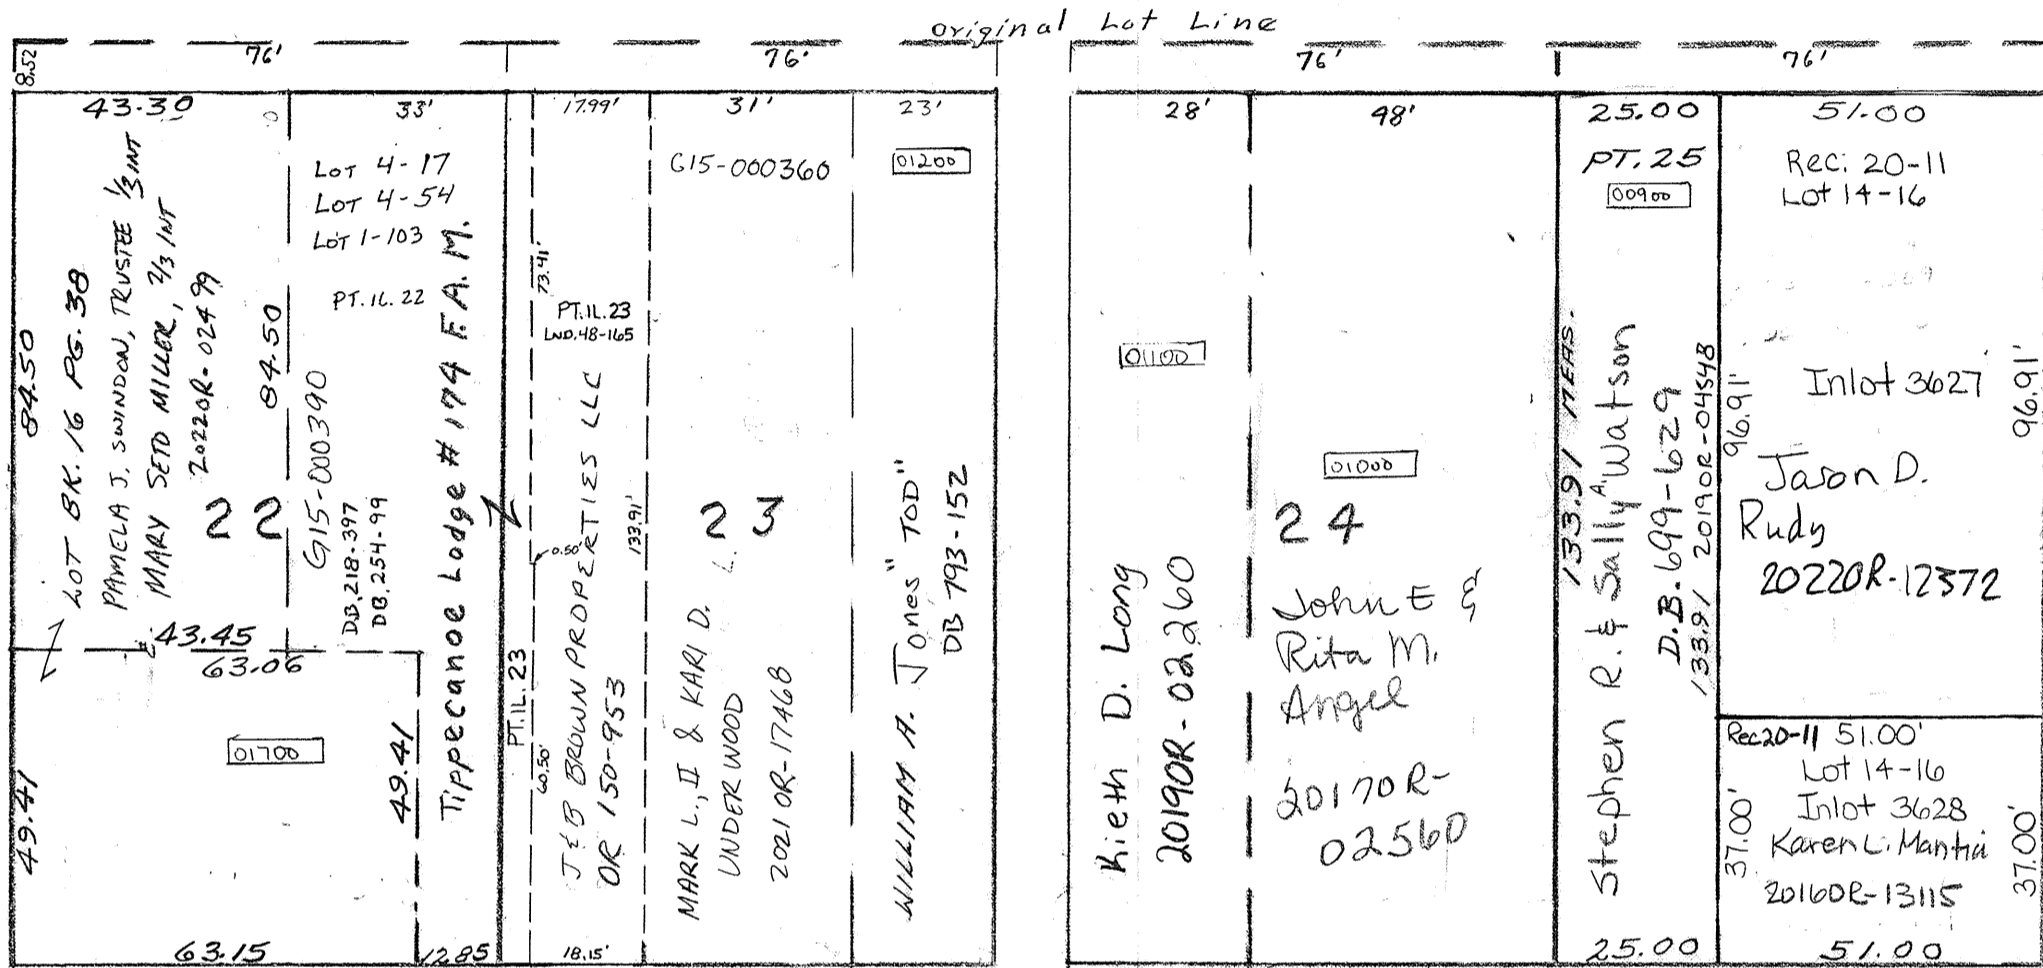 Original Lot Line
8.52
76'
76'
76'
76'
43.30
33'
17.99'
31'
23'
28'
48'
25.00
51.00
84.50
LOT BK. 16 PG. 38
PAMELA J. SWINDON, TRUSTEE 1/3 INT
MARY SETO MILLER, 2/3 INT
20220R-02499
22
84.50
43.45
63.06
01700
49.41
49.41
63.15
LOT 4-17
LOT 4-54
LOT 1-103
PT. IL. 22
G15-000390
DB. 218-397
DB. 254-99
Tippecanoe Lodge #174 F.A.M.
12.85
PT. IL. 23
73.41'
0.50'
60.50'
PT. IL. 23
LND. 48-165
J & B BROWN PROPERTIES LLC
OR 150-953
133.91'
18.15'
G15-000360
23
MARK L., II & KARI D. L.
UNDERWOOD
20210R-17468
01200
WILLIAM A. Jones "TOD"
DB 793-152
01100
Kieth D. Long
20190R-02260
01000
24
John E &
Rita M.
Angel
20170R-
02560
PT. 25
00900
133.91 MEAS.
Stephen R. & Sally A. Watson
D.B. 699-629
133.91 20190R-04548
25.00
Rec: 20-11
Lot 14-16
96.91'
Inlot 3627
96.91'
Jason D.
Rudy
20220R-12372
Rec 20-11 51.00'
Lot 14-16
Inlot 3628
37.00'
Karen L. Mantia
37.00'
20160R-13115
51.00